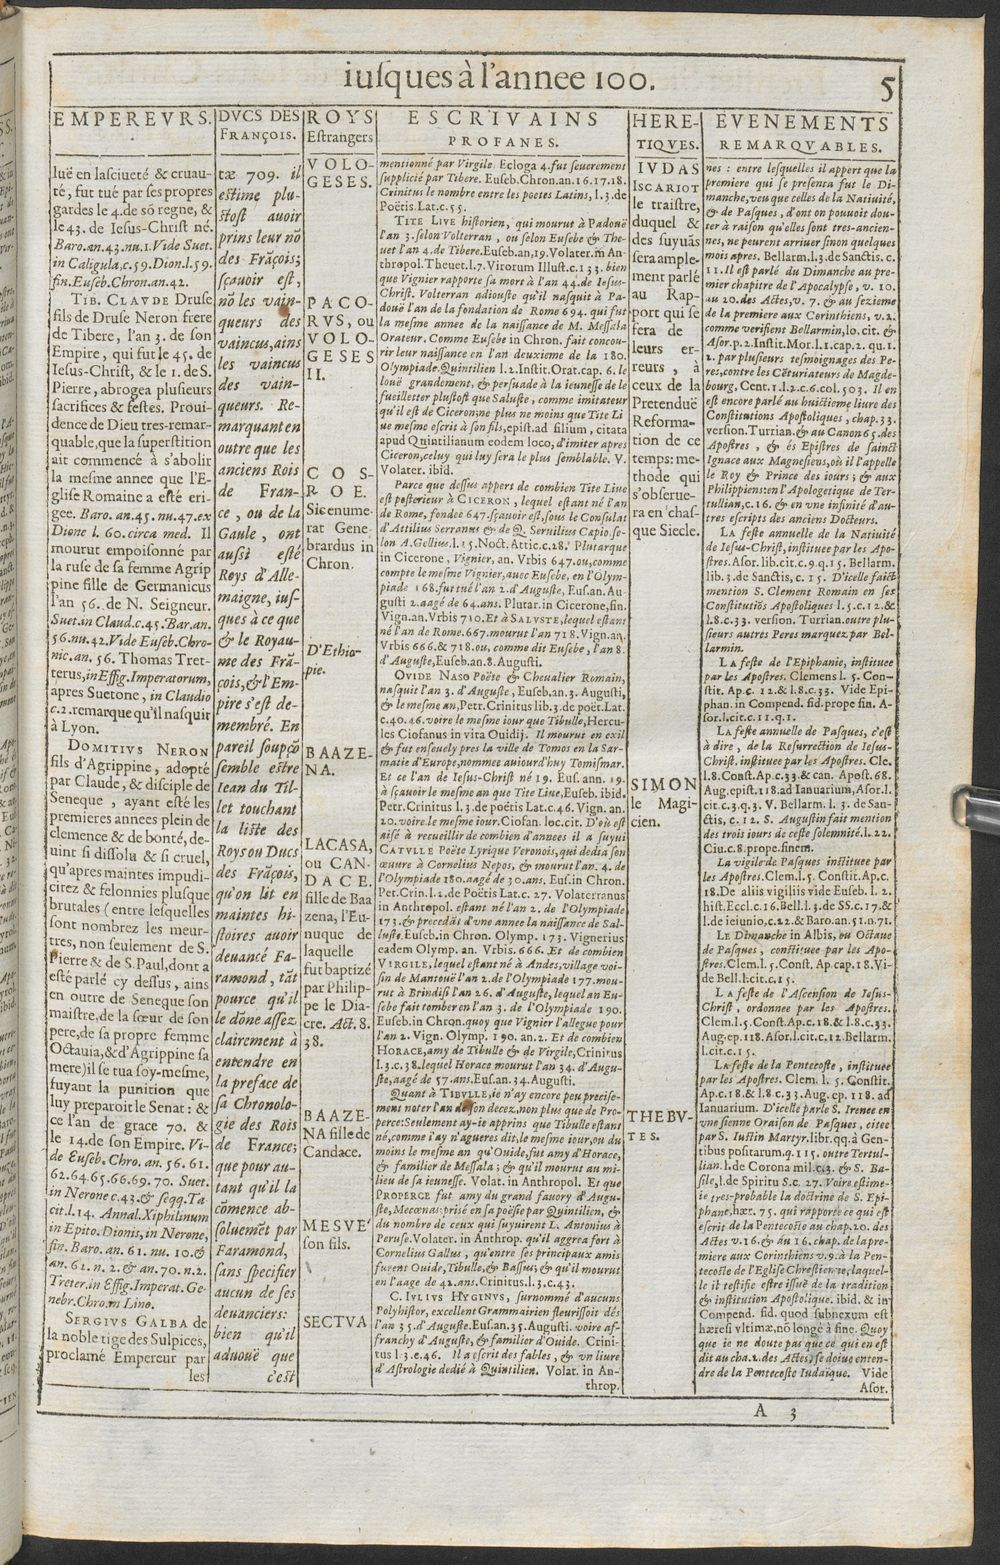 iusques à l'annee 100.
5
EMPEREVRS.
luë en lasciueté & cruau-
té, fut tué par ses propres
gardes le 4.de sõ regne, &
le 43. de Iesus-Christ né.
Baro.an.43.nu.1.Vide Suet.
in Caligula,c.59.Dion.l.59.
fin.Euseb.Chron.an.42.
TIB. CLAVDE Druse
fils de Druse Neron frere
de Tibere, l'an 3. de son
Empire, qui fut le 45. de
Iesus-Christ, & le 1. de S.
Pierre, abrogea plusieurs
sacrifices & festes. Proui-
dence de Dieu tres-remar-
quable,que la superstition
ait commencé à s'abolir
la mesme annee que l'E-
glise Romaine a esté eri-
gee. Baro. an.45. nu.47.ex
Dione l. 60.circa med. Il
mourut empoisonné par
la ruse de sa femme Agrip
pine fille de Germanicus
l'an 56. de N. Seigneur.
Suet.in Claud.c.45.Bar.an.
56.nu.42.Vide Euseb.Chro-
nic.an. 56. Thomas Tret-
terus,in Effig.Imperatorum,
apres Suetone, in Claudio
c.2.remarque qu'il nasquit
à Lyon.
DOMITIVS NERON
fils d'Agrippine, adopté
par Claude, & disciple de
Seneque , ayant esté les
premieres annees plein de
clemence & de bonté, de-
uint si dissolu & si cruel,
qu'apres maintes impudi-
citez & felonnies plusque
brutales (entre lesquelles
sont nombrez les meur-
tres, non seulement de S.
Pierre & de S.Paul,dont a
esté parlé cy dessus , ains
en outre de Seneque son
maistre,de la sœur de son
pere,de sa propre femme
Octauia,&d'Agrippine sa
mere)il se tua soy-mesme,
fuyant la punition que
luy preparoit le Senat : &
ce l'an de grace 70. &
le 14.de son Empire. Vi-
de Euseb. Chro. an. 56. 61.
62.64.65.66.69.70. Suet.
in Nerone c.43.& seqq.Ta
cit.l.14. Annal.Xiphilinum
in Epito.Dionis,in Nerone,
fin. Baro. an. 61. nu. 10.&
an. 62. n. 2. & an.70.n.2.
Treter.in Effig.Imperat.Ge-
nebr.Chro.in Lino.
SERGIVS GALBA de
la noble tige des Sulpices,
proclamé Empereur par
les
DVCS DES
FRANÇOIS.
tæ 709. il
estime plu-
stost auoir
prins leur nõ
des Frãçois;
sçauoir est,
nõ les vain-
queurs des
vaincus,ains
les vaincus
des vain-
queurs. Re-
marquant en
outre que les
anciens Rois
de Fran-
ce , ou de la
Gaule , ont
aussi esté
Roys d'Alle-
maigne, ius-
ques à ce que
& le Royau-
me des Frã-
çois,&l'Em-
pire s'est de-
membré. En
pareil soupçõ
semble estre
Iean du Til-
let touchant
la liste des
Roys ou Ducs
des Frãçois,
qu'on lit en
maintes hi-
stoires auoir
deuancé Fa-
ramond , tãt
pource qu'il
le dõne assez
clairement à
entendre en
la preface de
sa Chronolo-
gie des Rois
de France;
que pour au-
tant qu'il la
cõmence ab-
soluemẽt par
Faramond,
sans specifier
aucun de ses
deuanciers:
bien qu'il
aduouë que
c'est
ROYS
Estrangers
VOLO-
GESES.
PACO-
RVS, ou
VOLO-
GESES
II.
COS-
ROE.
Sic enume-
rat Gene-
brardus in
Chron.
D'Ethio-
pie.
BAAZE-
NA.
LACASA,
ou CAN-
DACE.
fille de Baa
zena, l'Eu-
nuque de
laquelle
fut baptizé
par Philip-
pe le Dia-
cre. Act. 8.
38.
BAAZE-
NA fille de
Candace.
MESVE'
son fils.
SECTVA
ESCRIVAINS
PROFANES.
mentionné par Virgile. Ecloga 4.fut seuerement
supplicié par Tibere. Euseb.Chron.an.16.17.18.
Crinitus le nombre entre les poetes Latins, l.3.de
Poëtis Lat.c.55.
TITE LIVE historien, qui mourut à Padouë
l'an 3.selon Volterran , ou selon Eusebe & The-
uet l'an 4.de Tibere.Euseb.an,19.Volater.in An-
thropol.Theuet.l.7.Virorum Illust.c.133. bien
que Vignier rapporte sa mort à l'an 44.de Iesus-
Christ. Volterran adiouste qu'il nasquit à Pa-
douë l'an de la fondation de Rome 694. qui fut
la mesme annee de la naissance de M. Messala
Orateur. Comme Eusebe in Chron. fait concou-
rir leur naissance en l'an deuxieme de la 180.
Olympiade.Quintilien l.2.Instit.Orat.cap. 6. le
louë grandement, & persuade à la ieunesse de le
fueilletter plustost que Saluste, comme imitateur
qu'il est de Ciceron;ne plus ne moins que Tite Li
ue mesme escrit à son fils,epist.ad filium, citata
apud Quintilianum eodem loco,d'imiter apres
Ciceron,celuy qui luy sera le plus semblable. V.
Volater. ibid.
Parce que dessus appert de combien Tite Liue
est posterieur à CICERON , lequel estant né l'an
de Rome, fondee 647.sçauoir est,sous le Consulat
d'Attilius Serranus & de Q. Seruilius Capio.se-
lon A.Gellius.l.15.Noct.Attic.c.28. Plutarque
in Cicerone, Vignier, an. Vrbis 647.ou,comme
compte le mesme Vignier,auec Eusebe, en l'Olym-
piade 168.fut tué l'an 2.d'Auguste, Eus.an.Au-
gusti 2.aagé de 64.ans. Plutar.in Cicerone,fin.
Vign.an.Vrbis 710.Et à SALVSTE,lequel estant
né l'an de Rome.667.mourut l'an 718.Vign.an.
Vrbis 666.& 718.ou, comme dit Eusebe, l'an 8.
d'Auguste,Euseb.an.8.Augusti.
OVIDE NASO Poëte & Cheualier Romain,
nasquit l'an 3. d'Auguste, Euseb.an.3. Augusti,
& le mesme an,Petr.Crinitus lib.3.de poët.Lat.
c.40.46.voire le mesme iour que Tibulle,Hercu-
les Ciofanus in vita Ouidij. Il mourut en exil
& fut enseuely pres la ville de Tomos en la Sar-
matie d'Europe,nommee auiourd'huy Tomismar.
Et ce l'an de Iesus-Christ né 19. Eus. ann. 19.
à sçauoir le mesme an que Tite Liue,Euseb. ibid.
Petr.Crinitus l.3.de poëtis Lat.c.46. Vign. an.
20.voire le mesme iour.Ciofan. loc.cit. D'où est
aisé à recueillir de combien d'annees il a suyui
CATVLLE Poëte Lyrique Veronois,qui dedia son
œuure à Cornelius Nepos, & mourut l'an. 4. de
l'Olympiade 180.aagé de 30.ans. Eus.in Chron.
Pet.Crin.l.2.de Poëtis Lat.c. 27. Volaterranus
in Anthropol. estant né l'an 2. de l'Olympiade
173.& precedãt d'vne annee la naissance de Sal-
luste,Euseb.in Chron. Olymp. 173. Vignerius
eadem Olymp. an. Vrbis.666. Et de combien
VIRGILE,lequel estant né à Andes,village voi-
sin de Mantouë l'an 2.de l'Olympiade 177.mou-
rut à Brindisi l'an 26. d'Auguste, lequel an Eu-
sebe fait tomber en l'an 3. de l'Olympiade 190.
Euseb.in Chron.quoy que Vignier l'allegue pour
l'an 2. Vign. Olymp. 190. an. 2. Et de combien
HORACE,amy de Tibulle & de Virgile,Crinitus
l.3.c.38.lequel Horace mourut l'an 34. d'Augu-
ste,aagé de 57.ans.Eus.an.34.Augusti.
Quant à TIBVLLE,ie n'ay encore peu precise-
ment noter l'an de son decez,non plus que de Pro-
perce:Seulement ay-ie apprins que Tibulle estant
né,comme i'ay n'agueres dit,le mesme iour,ou du
moins le mesme an qu'Ouide,fut amy d'Horace,
& familier de Messala ; & qu'il mourut au mi-
lieu de sa ieunesse. Volat. in Anthropol. Et que
PROPERCE fut amy du grand fauory d'Augu-
ste, Mecœnas; prisé en sa poësie par Quintilien, &
du nombre de ceux qui suyuirent L. Antonius à
Peruse.Volater.in Anthrop. qu'il aggrea fort à
Cornelius Gallus , qu'entre ses principaux amis
furent Ouide,Tibulle,& Bassus;& qu'il mourut
en l'aage de 41.ans.Crinitus.l.3.c.43.
C. IVLIVS HYGINVS, surnommé d'aucuns
Polyhistor, excellent Grammairien fleurissoit dés
l'an 35.d'Auguste.Eus.an.35.Augusti. voire af-
franchy d'Auguste, & familier d'Ouide. Crini-
tus l.3.c.46. Il a escrit des fables , & vn liure
d'Astrologie dedié à Quintilien. Volat. in An-
throp.
HERE-
TIQVES.
IVDAS
ISCARIOT
le traistre,
duquel &
des suyuãs
sera ample-
ment parlé
au Rap-
port qui se
fera de
leurs er-
reurs , à
ceux de la
Pretenduë
Reforma-
tion de ce
temps: me-
thode qui
s'obserue-
ra en chas-
que Siecle.
SIMON
le Magi-
cien.
THEBV-
TES.
EVENEMENTS
REMARQVABLES.
nes : entre lesquelles il appert que la
premiere qui se presenta fut le Di-
manche,veu que celles de la Natiuité,
& de Pasques , d'ont on pouuoit dou-
ter à raison qu'elles sont tres-ancien-
nes, ne peurent arriuer sinon quelques
mois apres. Bellarm.l.3.de Sanctis. c.
11.Il est parlé du Dimanche au pre-
mier chapitre de l'Apocalypse , v. 10.
au 20.des Actes,v. 7. & au sezieme
de la premiere aux Corinthiens, v.2.
comme verifient Bellarmin,lo. cit. &
Asor.p.2.Instit.Mor.l.1.cap.2. qu.1.
2. par plusieurs tesmoignages des Pe-
res,contre les Cẽturiateurs de Magde-
bourg, Cent.1.l.2.c.6.col.503. Il en
est encore parlé au huictieme liure des
Constitutions Apostoliques , chap.33.
version.Turrian.& au Canon 65.des
Apostres , & és Epistres de sainct
Ignace aux Magnesiens,où il l'appelle
le Roy & Prince des iours ; & aux
Philippiens:en l'Apologetique de Ter-
tullian,c.16. & en vne infinité d'au-
tres escripts des anciens Docteurs.
LA feste annuelle de la Natiuité
de Iesus-Christ, instituee par les Apo-
stres.Asor.lib.cit.c.9.q.15. Bellarm.
lib.3.de Sanctis, c. 15. D'icelle faict
mention S. Clement Romain en ses
Constitutiõs Apostoliques l.5.c.12.&
l.8.c.33. version. Turrian.outre plu-
sieurs autres Peres marquez par Bel-
larmin.
LA feste de l'Epiphanie, instituee
par les Apostres. Clemens l. 5. Con-
stit. Ap.c. 12.& l.8.c.33. Vide Epi-
phan.in Compend. fid.prope fin. A-
sor.l.cit.c.11.q.1.
LA feste annuelle de Pasques, c'est
à dire , de la Resurrection de Iesus-
Christ, instituee par les Apostres. Cle.
l.8.Const.Ap.c.33.& can. Apost.68.
Aug.epist.118.ad Ianuarium,Asor.l.
cit.c.3.q.3. V. Bellarm. l. 3. de San-
ctis, c.12. S. Augustin fait mention
des trois iours de ceste solemnité.l.22.
Ciu.c.8.prope.finem.
La vigile de Pasques instituee par
les Apostres.Clem.l.5. Constit.Ap.c.
18.De aliis vigiliis vide Euseb. l. 2.
hist.Eccl.c.16.Bell.l.3.de SS.c.17.&
l.de ieiunio,c.22.& Baro.an.51.n.71.
LE Dimanche in Albis, ou Octaue
de Pasques , constituee par les Apo-
stres.Clem.l.5.Const. Ap.cap.18.Vi-
de Bell.h.cit.c.15.
LA feste de l'Ascension de Iesus-
Christ , ordonnee par les Apostres.
Clem.l.5.Const.Ap.c.18.& l.8.c.33.
Aug.ep.118.Asor.l.cit.c.12.Bellarm.
l.cit.c.15.
LA feste de la Pentecoste , instituee
par les Apostres. Clem. l. 5. Constit.
Ap.c.18.& l.8.c.33.Aug.ep.118.ad
Ianuarium. D'icelle parle S. Irenee en
vne sienne Oraison de Pasques , citee
par S. Iustin Martyr.libr.qq.à Gen-
tibus positarum.q.115.outre Tertul-
lian.l.de Corona mil.c.3. & S. Ba-
sile,l.de Spiritu S.c. 27. Voire estime-
ie tres-probable la doctrine de S. Epi-
phane,hær. 75. qui rapporte ce qui est
escrit de la Pentecoste au chap.20. des
Actes v.16.& au 16. chap. de la pre-
miere aux Corinthiens v.9.à la Pen-
tecoste de l'Eglise Chrestienne,laquel-
le il testifie estre issuë de la tradition
& institution Apostolique. ibid. & in
Compend. fid. quod subnexum est
hæresi vltimæ,nõ longè à fine. Quoy
que ie ne doute pas que ce qui en est
dit au cha.2.des Actes,se doiue enten-
dre de la Pentecoste Iudaïque. Vide
Asor.
A 3